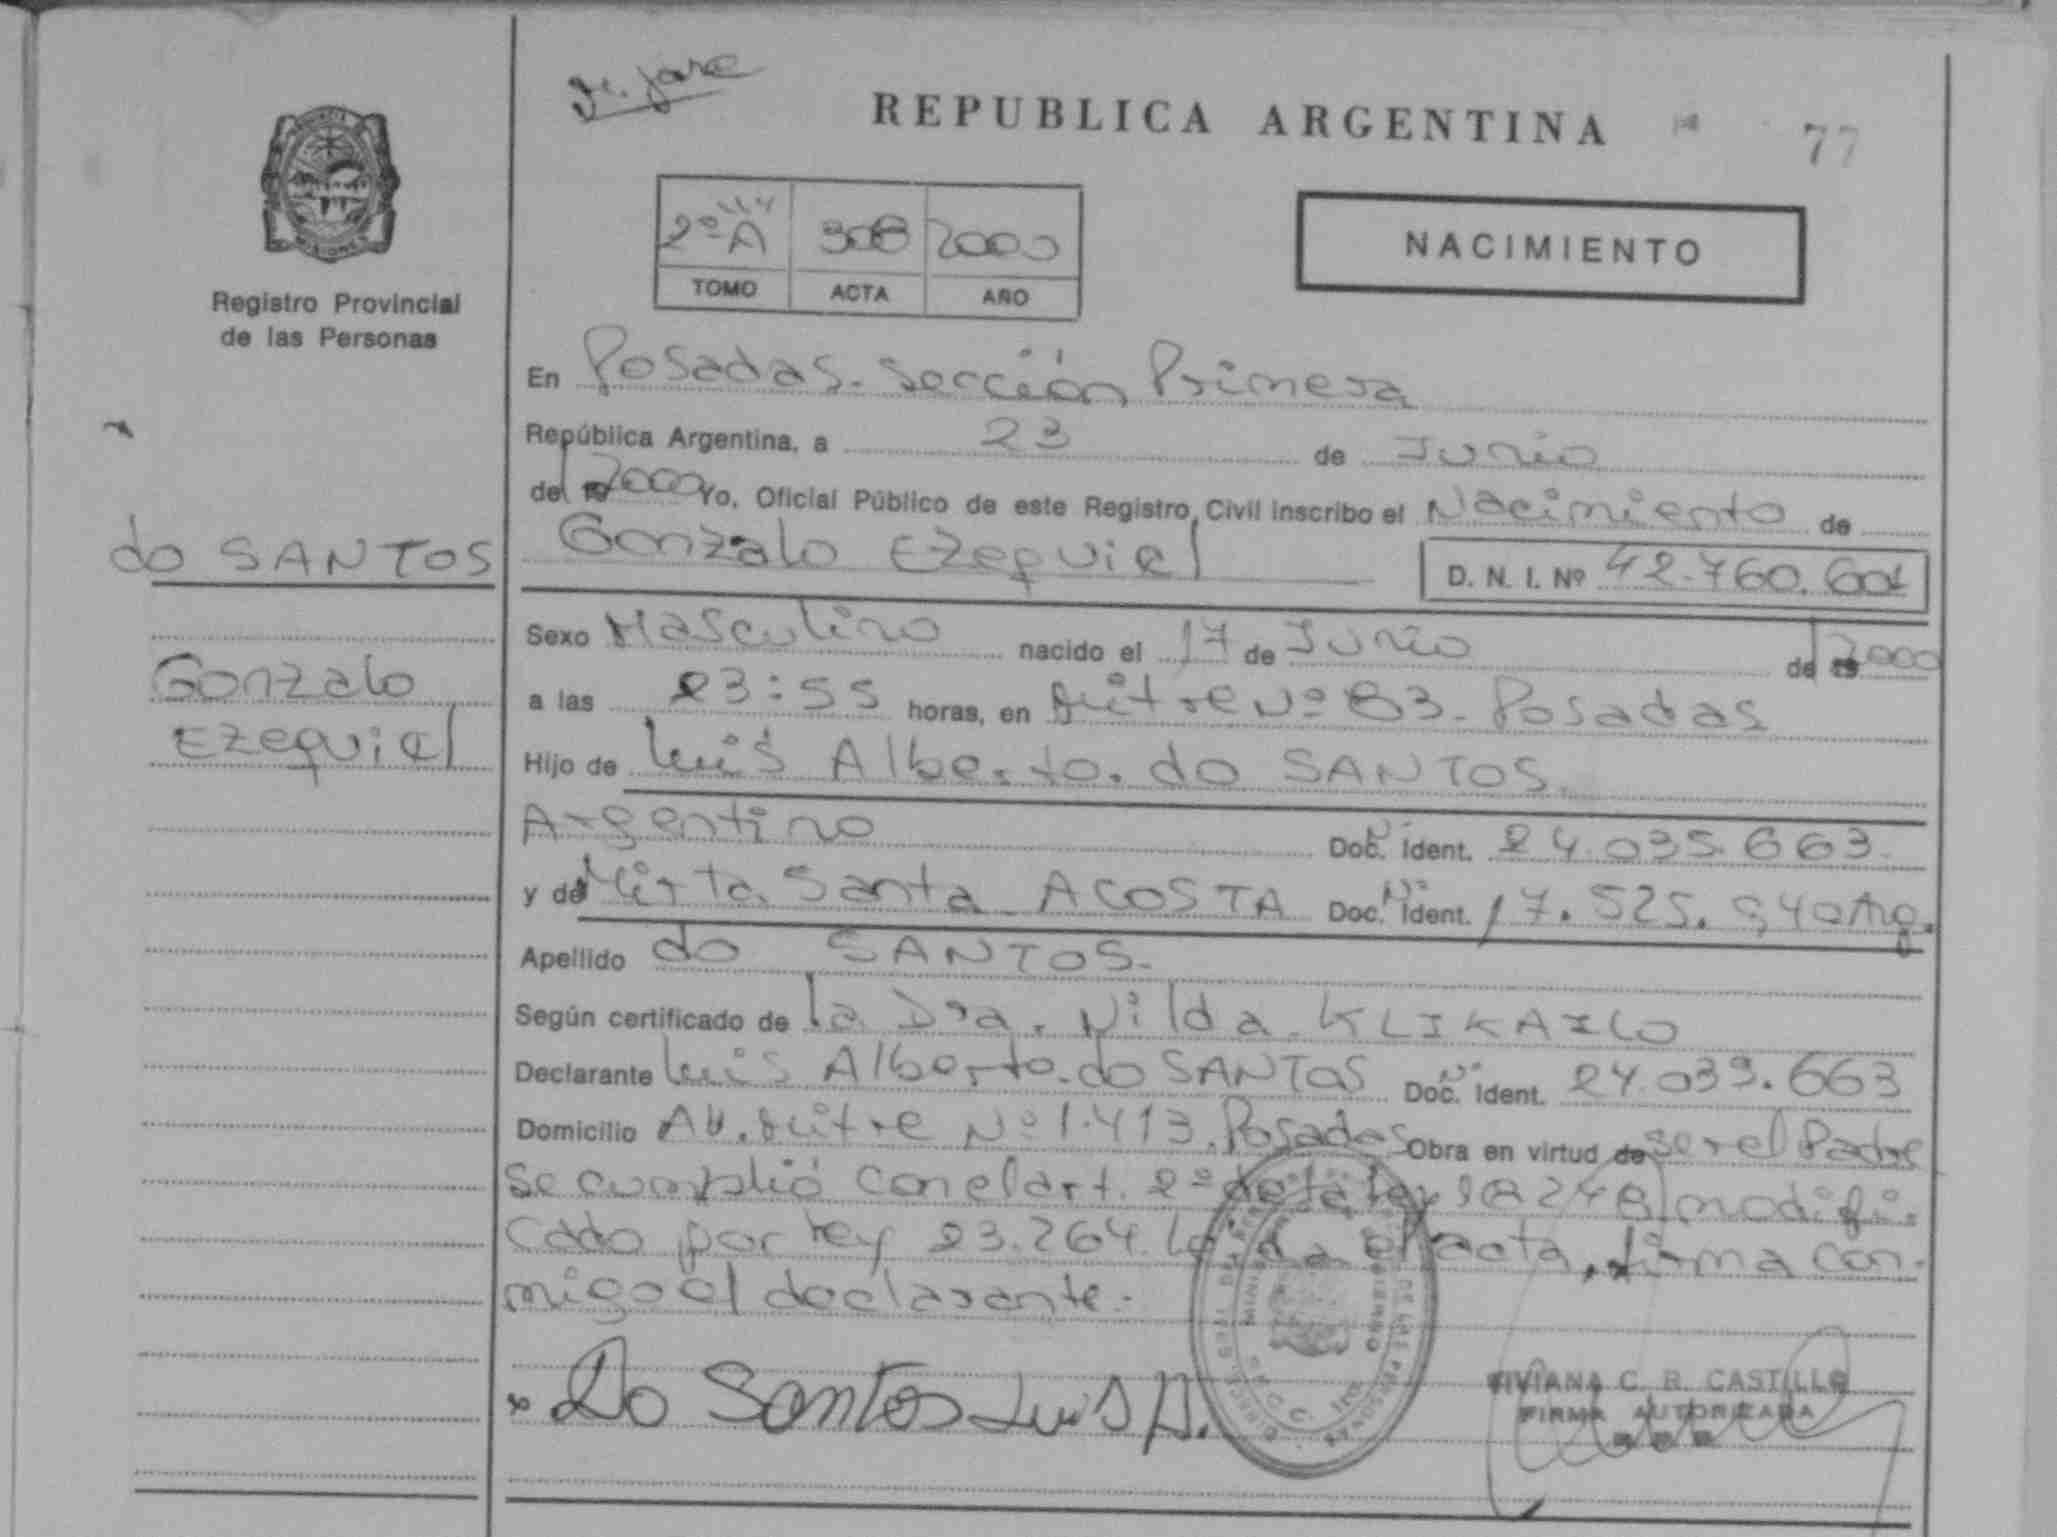 REPUBLICA ARGENTINA
77
2º A 308 2000
TOMO ACTA AÑO
NACIMIENTO
PROVINCIA
MISIONES
Registro Provincial
de las Personas
En Posadas. Sección Primera
República Argentina, a 23 de Junio
del 2000 Yo, Oficial Público de este Registro Civil inscribo el Nacimiento de
do SANTOS
Gonzalo Ezequiel
D. N. I. Nº 42.760.601
Gonzalo
Ezequiel
Sexo Masculino nacido el 17 de Junio de 2000
a las 23:55 horas, en Mitre Nº 83. Posadas
Hijo de Luis Alberto. do SANTOS.
Argentino Doc. Ident. 24.035.663.
y de Mirta Santa ACOSTA Doc. Ident. 17.525.940 Arg.
Apellido do SANTOS.
Según certificado de la Dra. Nilda KLIKAILO
Declarante Luis Alberto. do SANTOS Doc. Ident. 24.039.663
Domicilio Av. Mitre Nº 1.413. Posadas Obra en virtud de ser el Padre
Se cumplió con el art. 2º de la ley 18248 modifi-
cado por ley 23.264. el acta, firma con-
migo el declarante.
Do Santos Luis A.
VIVIANA C. R. CASTILLO
FIRMA AUTORIZADA